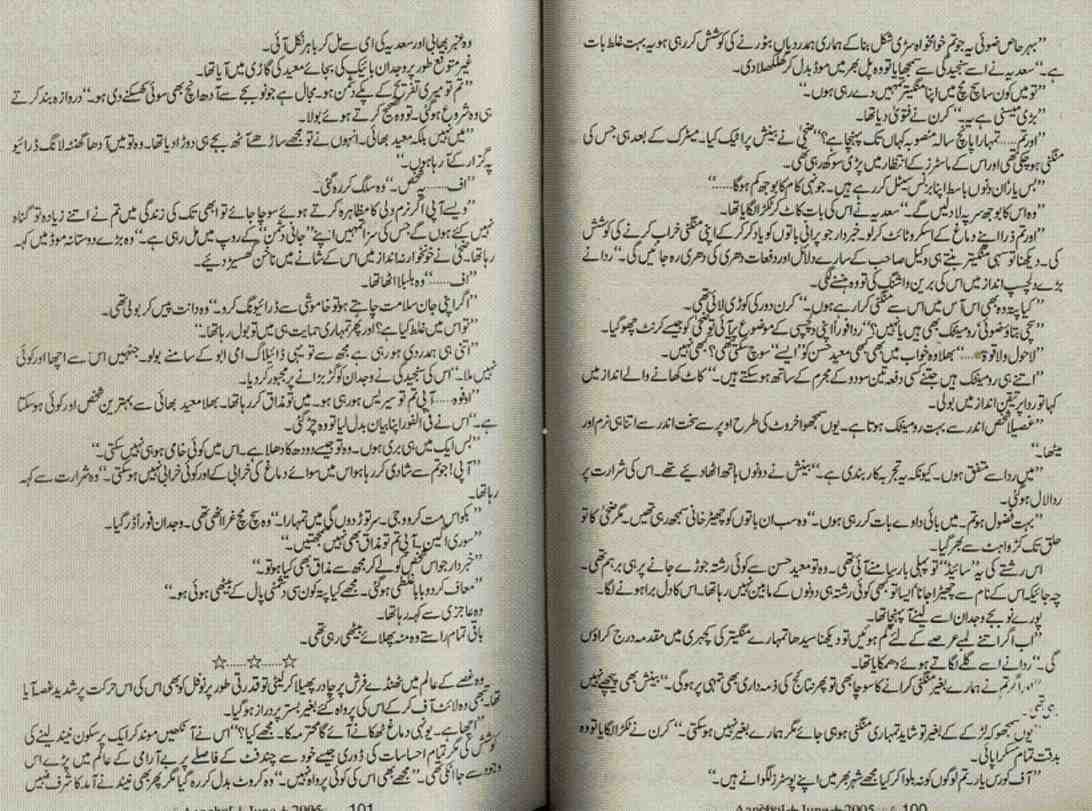 ”بہرحاص ضوئی یہ جو تم خوامخواہ سڑی شکل بنا کے ہماری ہمدردیاں بٹورنے کی کوشش کر رہی ہو یہ بہت غلط بات
ہے۔“ سعدیہ نے اسے سنجیدگی سے سمجھایا تو وہ پل بھر میں موڈ بدل کر کھلکھلا دی۔
”تو میں کون سا سچ مچ میں اپنا منگیتر تمہیں دے رہی ہوں۔“
”بڑی میسنی ہے یہ۔“ کرن نے فتویٰ دیا تھا۔
”اور تم..... تمہارا پانچ سالہ منصوبہ کہاں تک پہنچا ہے؟“ ضحیٰ نے بینش پر اٹیک کیا۔ میٹرک کے بعد ہی جس کی
منگنی ہو چکی تھی اور اس کے ماسٹرز کے انتظار میں پڑی سوکھ رہی تھی۔
”بس یار ان دنوں باسط اپنا بزنس سیٹل کر رہے ہیں۔ جونہی کام کا بوجھ کم ہوگا.....“
”وہ اس کا بوجھ سر پہ لاد لیں گے۔“ سعدیہ نے اس کی بات کاٹ کر ٹکڑا لگایا تھا۔
”اور تم ذرا اپنے دماغ کے اسکرو ٹائٹ کر لو۔ خبردار جو پرانی باتوں کو یاد کر کے اپنی منگنی خراب کرنے کی کوشش
کی۔ دیکھنا تو سہی منگیتر بنتے ہی وکیل صاحب کے سارے دلائل اور دفعات دھری کی دھری رہ جائیں گی۔“ ردا نے
بڑے دلچسپ انداز میں اس کی برین واشنگ کی تو وہ ہنسنے لگی۔
”کیا پتہ وہ بھی اس آس میں اس سے منگنی کرا رہے ہوں۔“ کرن دور کی کوڑی لائی تھی۔
”سچی بتاؤ ضوئی! رومینٹک بھی ہیں یا نہیں؟“ ردا فوراً اپنی دلچسپی کے موضوع پر آئی تو ضحیٰ کو جیسے کرنٹ چھو گیا۔
”لاحول ولا قوۃ.....“ بھلا وہ خواب میں بھی کبھی معید حسن کو ”ایسے“ سوچ سکتی تھی؟ کبھی نہیں۔
”اتنے ہی رومینٹک ہیں جتنے کسی دفعہ تین سو دو کے مجرم کے ساتھ ہو سکتے ہیں۔“ کاٹ کھانے والے انداز میں
کہا تو ردا پر یقین انداز میں بولی۔
”غصیلا شخص اندر سے بہت رومینٹک ہوتا ہے۔ یوں سمجھو اخروٹ کی طرح اوپر سے سخت اندر سے اتنا ہی نرم اور
میٹھا۔“
”میں ردا سے متفق ہوں۔ کیونکہ یہ تجربہ کار بندی ہے۔“ بینش نے دونوں ہاتھ اٹھا دیئے تھے۔ اس کی شرارت پر
ردا لال ہو گئی۔
”بہت فضول ہو تم۔ میں بائی دا وے بات کر رہی ہوں۔“ وہ سب ان باتوں کو چھیڑ خانی سمجھ رہی تھیں۔ مگر ضحیٰ کا تو
حلق تک کڑواہٹ سے بھر گیا۔
اس رشتے کی یہ ”سائیڈ“ تو پہلی بار سامنے آئی تھی۔ وہ تو معید حسن سے کوئی رشتہ جوڑے جانے پر ہی برہم تھی۔
چہ جائیکہ اس کے نام سے چھیڑا جانا ایسا تو کبھی کوئی رشتہ ہی دونوں کے مابین نہیں رہا تھا۔ اس کا دل برا ہونے لگا۔
پورے نو بجے وجدان اسے لینے آ پہنچا تھا۔
”اب اگر اتنے لمبے عرصے کے لئے گم ہوئیں تو دیکھنا سیدھا تمہارے منگیتر کی کچہری میں مقدمہ درج کراؤں
گی۔“ ردا نے اسے گلے لگاتے ہوئے دھمکایا تھا۔
”اور اگر تم نے ہمارے بغیر منگنی کرانے کا سوچا بھی تو پھر نتائج کی ذمہ داری بھی تمہی پر ہوگی۔“ بینش بھی پیچھے نہیں
رہی تھی۔
”یوں سمجھو کہ لڑکے کے بغیر تو شاید تمہاری منگنی ہو ہی جائے مگر ہمارے بغیر نہیں ہو سکتی۔“ کرن نے ٹکڑا لگایا تو وہ
بدقت تمام مسکرا پائی۔
”آف کورس یار۔ تم لوگوں کو نہ بلوا کر کیا مجھے شہر بھر میں اپنے پوسٹرز لگوانے ہیں۔“
Aanchal + June + 2005 100
وہ عنبر بھابی اور سعدیہ کی امی سے مل کر باہر نکل آئی۔
غیر متوقع طور پر وجدان بائیک کی بجائے معید کی گاڑی میں آیا تھا۔
”تم تو میری تفریح کے پکے دشمن ہو۔ مجال ہے جو نو بجے سے آدھا انچ بھی سوئی کھسکنے دی ہو۔“ دروازہ بند کرتے
ہی وہ شروع ہو گئی۔ تو وہ تصحیح کرتے ہوئے بولا۔
”میں نہیں بلکہ معید بھائی۔ انہوں نے تو مجھے ساڑھے آٹھ بجے ہی دوڑا دیا تھا۔ وہ تو میں آدھا گھنٹہ لانگ ڈرائیو
پہ گزار کے آ رہا ہوں۔“
”اف..... یہ شخص۔“ وہ سلگ کر رہ گئی۔
”ویسے آپی اگر نرم دلی کا مظاہرہ کرتے ہوئے سوچا جائے تو ابھی تک کی زندگی میں تم نے اتنے زیادہ تو گناہ
نہیں کئے ہوں گے جس کی سزا تمہیں اپنے ”جانی دشمن“ کے روپ میں مل رہی ہے۔“ وہ بڑے دوستانہ موڈ میں کہہ
رہا تھا۔ ضحیٰ نے خونخوارانہ انداز میں اس کے شانے میں ناخن گھسیڑ دیئے۔
”اف.....“ وہ بلبلا اٹھا تھا۔
”اگر اپنی جان سلامت چاہتے ہو تو خاموشی سے ڈرائیونگ کرو۔“ وہ دانت پیس کر بولی تھی۔
”تو اس میں غلط کیا ہے؟ اور پھر تمہاری حمایت ہی میں تو بول رہا تھا۔“
”اتنی ہی ہمدردی ہو رہی ہے مجھ سے تو یہی ڈائیلاگ امی ابو کے سامنے بولو۔ جنہیں اس سے اچھا اور کوئی
نہیں ملا۔“ اس کی سنجیدگی نے وجدان کو گڑبڑانے پر مجبور کر دیا۔
”اوفوہ..... آپی تم تو سیریس ہو رہی ہو۔ میں تو مذاق کر رہا تھا۔ بھلا معید بھائی سے بہترین شخص اور کوئی ہو سکتا
ہے۔“ اس نے فی الفور اپنا بیان بدل لیا تو وہ چڑ گئی۔
”بس ایک میں ہی بری ہوں۔ وہ تو جیسے دودھ کا دھلا ہے۔ اس میں کوئی خامی ہو ہی نہیں سکتی۔“
”آپی! جو تم سے شادی کر رہا ہو اس میں سوائے دماغ کی خرابی کے اور کوئی خرابی نہیں ہو سکتی۔“ وہ شرارت سے کہہ
رہا تھا۔
”بکواس مت کرو وجی۔ سر توڑ دوں گی میں تمہارا۔“ وہ سچ مچ غرا اٹھی تھی۔ وجدان فوراً ڈر گیا۔
”سوری اگین۔ آپی تم تو مذاق بھی نہیں سمجھتیں۔“
”خبردار جو اس شخص کو لے کر مجھ سے مذاق بھی کیا ہو تو۔“
”معاف کر دو بابا غلطی ہو گئی۔ مجھے کیا پتہ کون سی دشمنی پال کے بیٹھی ہوئی ہو۔“
وہ عاجزی سے کہہ رہا تھا۔
باقی تمام راستے وہ منہ پھلائے بیٹھی رہی تھی۔
☆.....☆.....☆
وہ غصے کے عالم میں ٹھنڈے فرش پر چادر پھیلا کر لیٹی تو قدرتی طور پر نوفل کو بھی اس کی اس حرکت پر شدید غصہ آیا
تھا۔ تبھی وہ لائٹ آف کر کے اس کی پرواہ کئے بغیر بستر پر دراز ہو گیا۔
”اچھا ہے۔ یونہی دماغ ٹھکانے آئے گا محترمہ کا۔ مجھے کیا؟“ اس نے آنکھیں موند کر ایک پرسکون نیند لینے کی
کوشش کی مگر تمام احساسات کی ڈوری جیسے خود سے چند فٹ کے فاصلے پر بے آرامی کے عالم میں پڑے اس
وجود سے جا اٹکی تھی۔ ”مجھے بھی اس کی کوئی پرواہ نہیں۔“ وہ کروٹ بدل کر رہ گیا مگر پھر بھی نیند نے آمد کا شرف نہیں
Aanchal + June + 2005 101